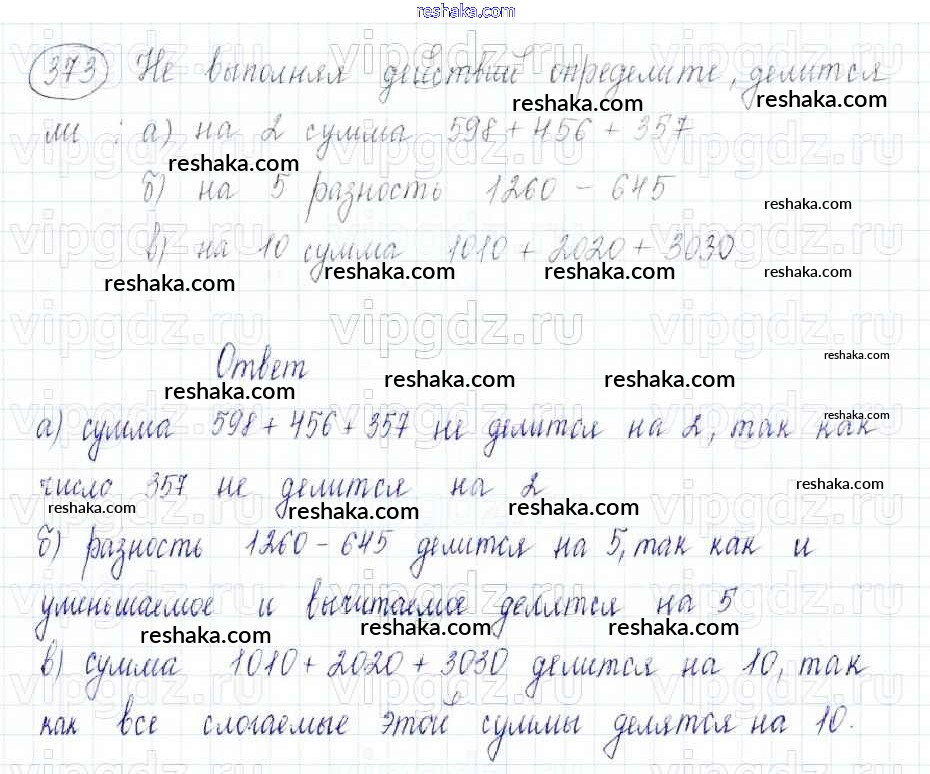 reshaka.com
373 Не выполняя действий определите, делится
ли : а) на 2 сумма 598 + 456 + 357
б) на 5 разность 1260 - 645
в) на 10 сумма 1010 + 2020 + 3030
Ответ
а) сумма 598 + 456 + 357 не делится на 2, так как
число 357 не делится на 2
б) разность 1260 - 645 делится на 5, так как и
уменьшаемое и вычитаемое делятся на 5
в) сумма 1010 + 2020 + 3030 делится на 10, так
как все слогаемые этой суммы делятся на 10.
vipgdz.ru